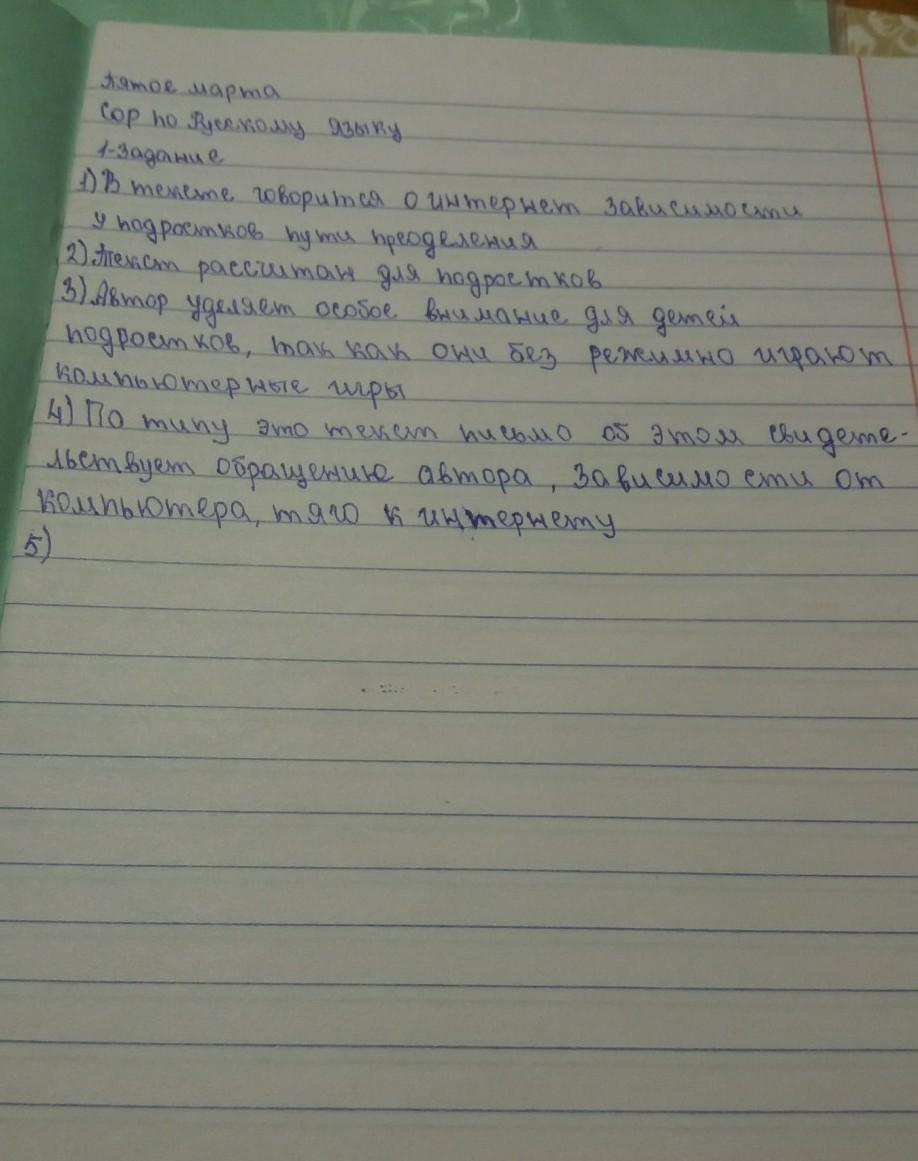 Пятое марта
Сор по Русскому языку
1-задание
1) В тексте говорится о интернет зависимости
у подростков пути преоделения
2) Текст рассчитан для подростков
3) Автор уделяет особое внимание для детей
подростков, так как они без режимно играют
компьютерные игры
4) По типу это текст письмо об этом свидете-
льствует обращению автора, зависимости от
компьютера, тяго к интернету
5)